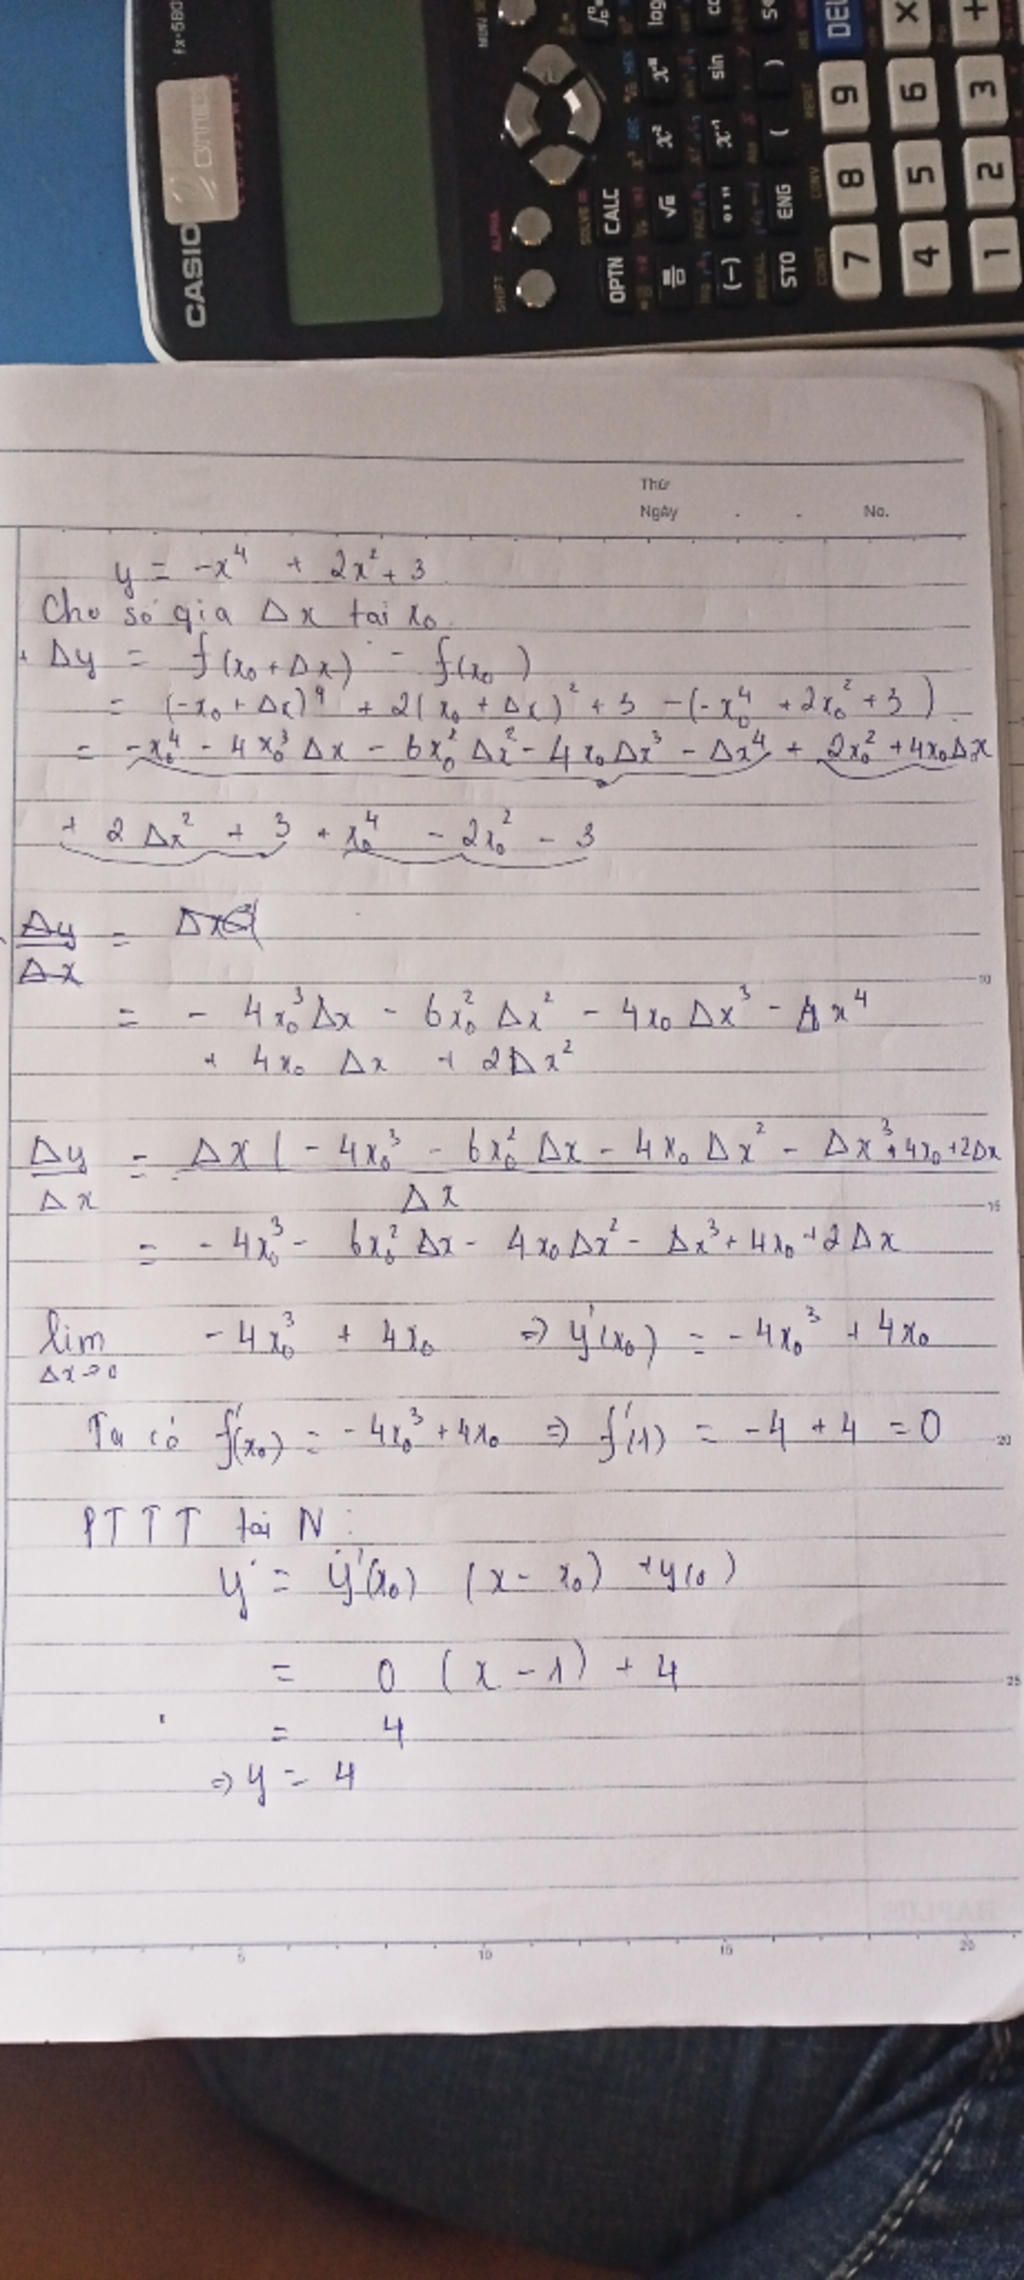 CASIO
fx-580
MENU
SHIFT
ALPHA
OPTN CALC
SOLVE =
STO ENG ( )
RECALL
(-) °'" x⁻¹ sin
√ x² xⁿ log
CONST CONV RESET
7 8 9 DEL
4 5 6 ×
1 2 3 +
Thứ
Ngày . . No.
y = -x⁴ + 2x² + 3
Cho số gia Δx tại x₀
+ Δy = f(x₀ + Δx) - f(x₀)
= (-x₀ + Δx)⁴ + 2(x₀ + Δx)² + 3 - (-x₀⁴ + 2x₀² + 3)
= -x₀⁴ - 4x₀³Δx - 6x₀²Δx² - 4x₀Δx³ - Δx⁴ + 2x₀² + 4x₀Δx
+ 2Δx² + 3 + x₀⁴ - 2x₀² - 3
Δy/Δx = Δx
= - 4x₀³Δx - 6x₀²Δx² - 4x₀Δx³ - Δx⁴
+ 4x₀Δx + 2Δx²
Δy/Δx = Δx(-4x₀³ - 6x₀²Δx - 4x₀Δx² - Δx³ + 4x₀ + 2Δx/Δx
= -4x₀³ - 6x₀²Δx - 4x₀Δx² - Δx³ + 4x₀ + 2Δx
lim Δx→0 -4x₀³ + 4x₀ ⇒ y'(x₀) = -4x₀³ + 4x₀
Ta có f'(x₀) = -4x₀³ + 4x₀ ⇒ f'(1) = -4 + 4 = 0
PTTT tại N :
y = y'(x₀) (x - x₀) + y(0)
= 0 (x - 1) + 4
= 4
⇒ y = 4
10
15
20
25
5 10 15 20